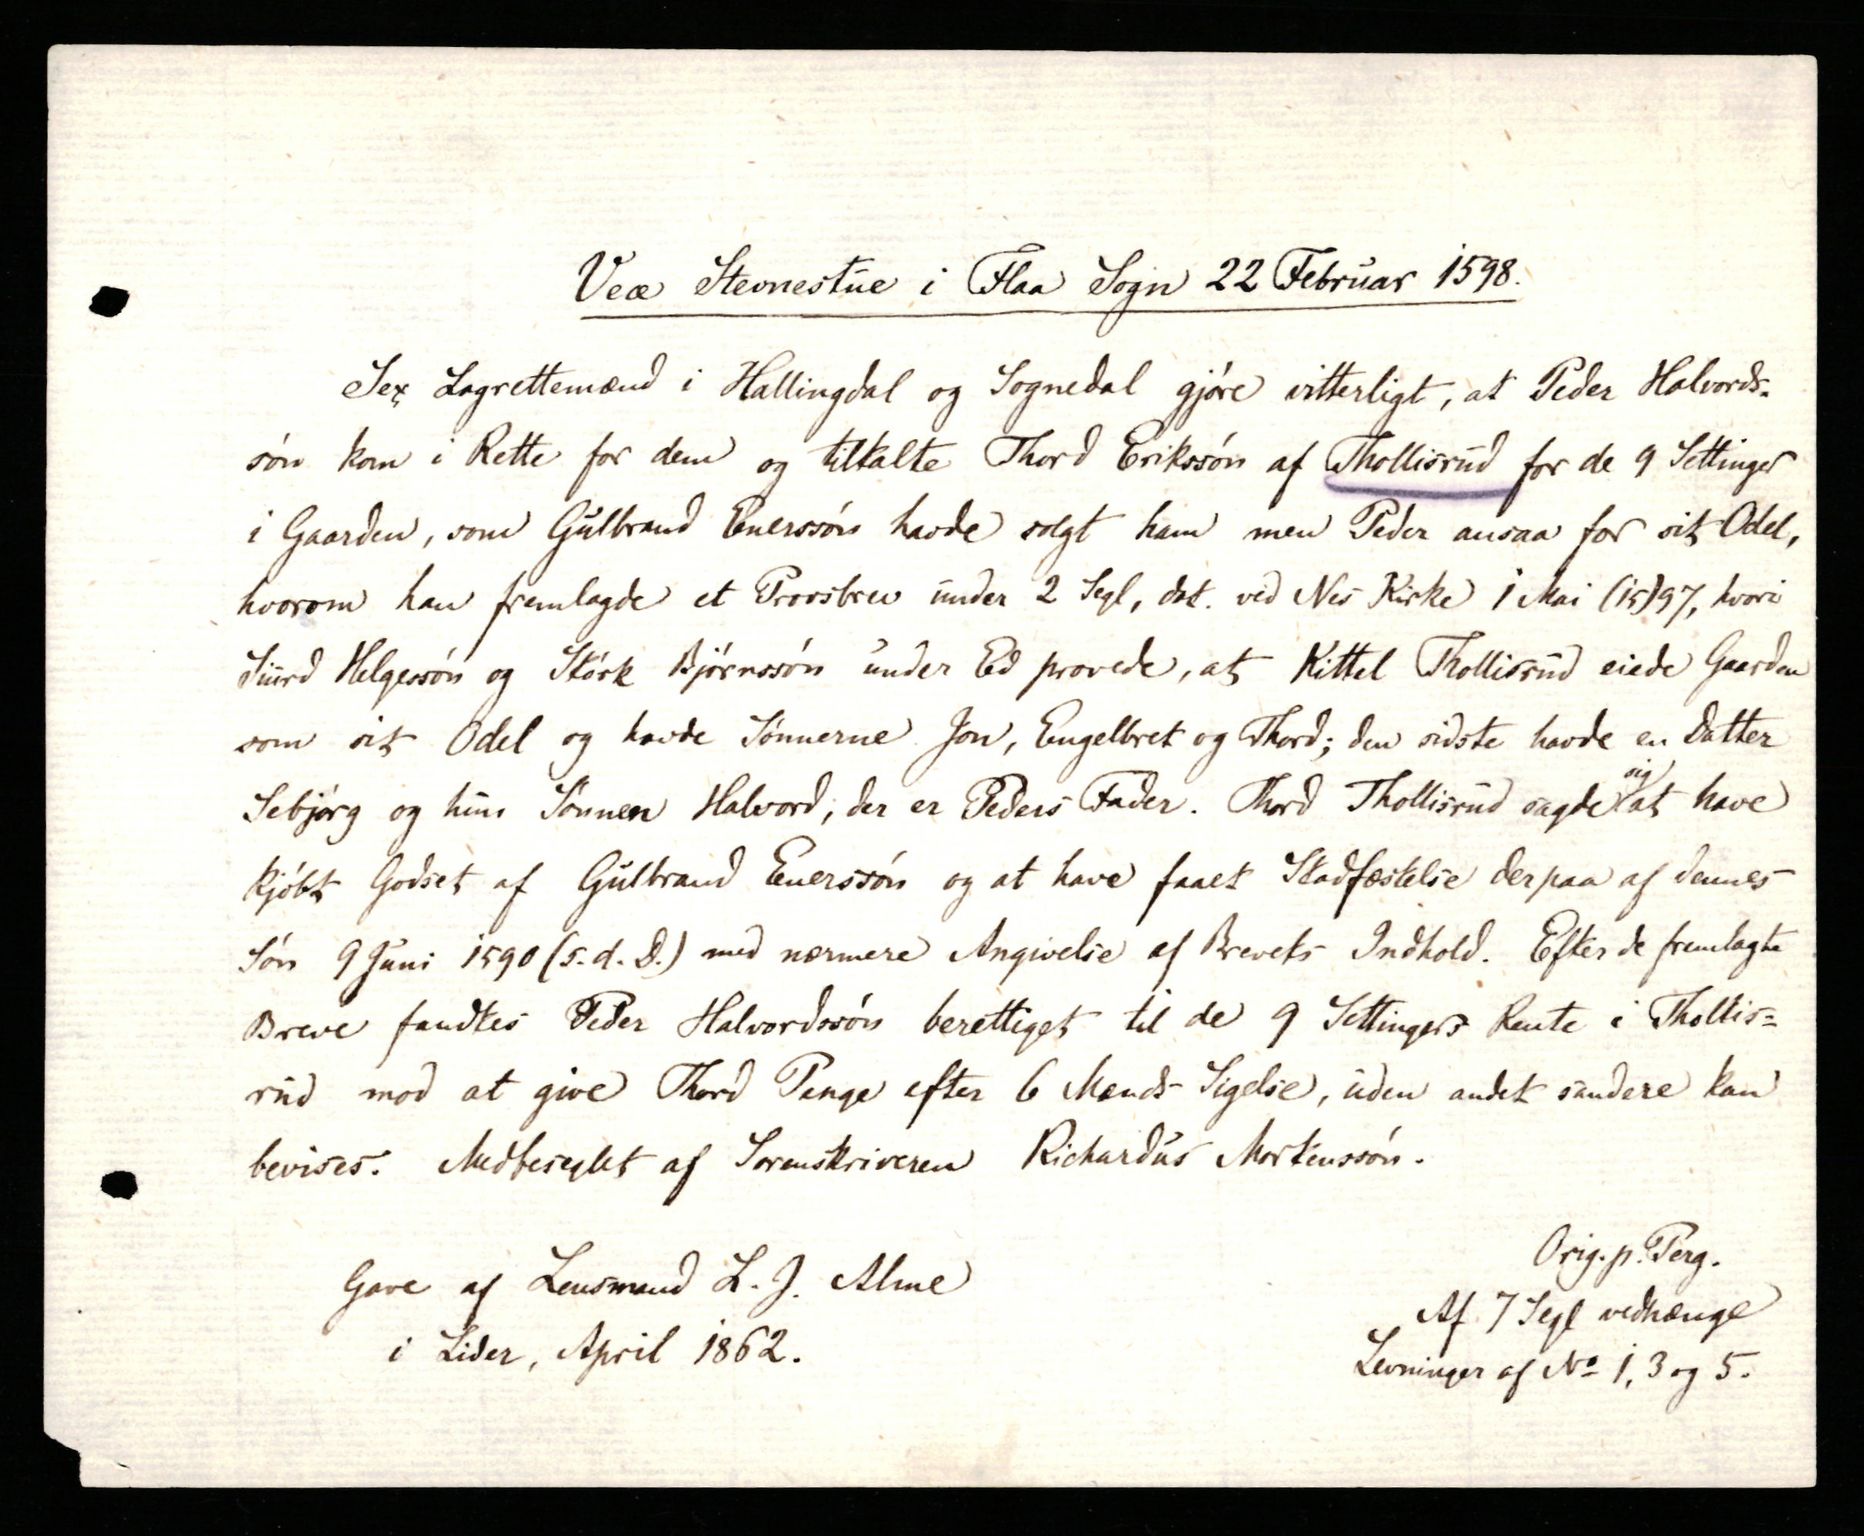 Veæ Stevnestue i Flaa Sogn 22 Februar 1598.
Sex Lagrettemænd i Hallingdal og Sognedal gjöre vitterligt, at Peder Halvords-
søn kom i Rette for dem og tiltalte Thord Erikssøn af Thollisrud for de 9 Settinger
i Gaarden, som Gulbrand Enerssøn havde solgt ham men Peder ansaa for sit Odel,
hvorom han fremlagde et Provsbrev under 2 Segl, dat. ved Nes Kirke 1 Mai (15)97, hvori
Siurd Helgessøn og Störk Björnssøn under Ed provede, at Kittel Thollisrud eiede Gaarden
som sit Odel og havde Sønnerne Jon, Engelbret og Thord; den sidste havde en Datter
Sebjörg og hun Sønnen Halvord, der er Peders Fader. Thord Thollisrud sagde sig at have
kjöbt Godset af Gulbrand Enerssøn og at have faaet Stadfæstelse derpaa af dennes
Søn 9 Juni 1590 (s. d. D.) med nærmere Angivelse af Brevets Indhold. Efter de fremlagte
Breve fandtes Peder Halvordssøn berettiget til de 9 Settingers Rente i Thollis=
rud mod at give Thord Penge efter 6 Mænds Sigelse, uden andet sandere kan
bevises. Medbeseglet af Sorenskriveren Richardus Mortenssøn.
Gave af Lensmand L. J. Alme
i Lider, April 1862.
Orig. p. Perg.
Af 7 Segl vedhænge
Levninger af No 1, 3 og 5.